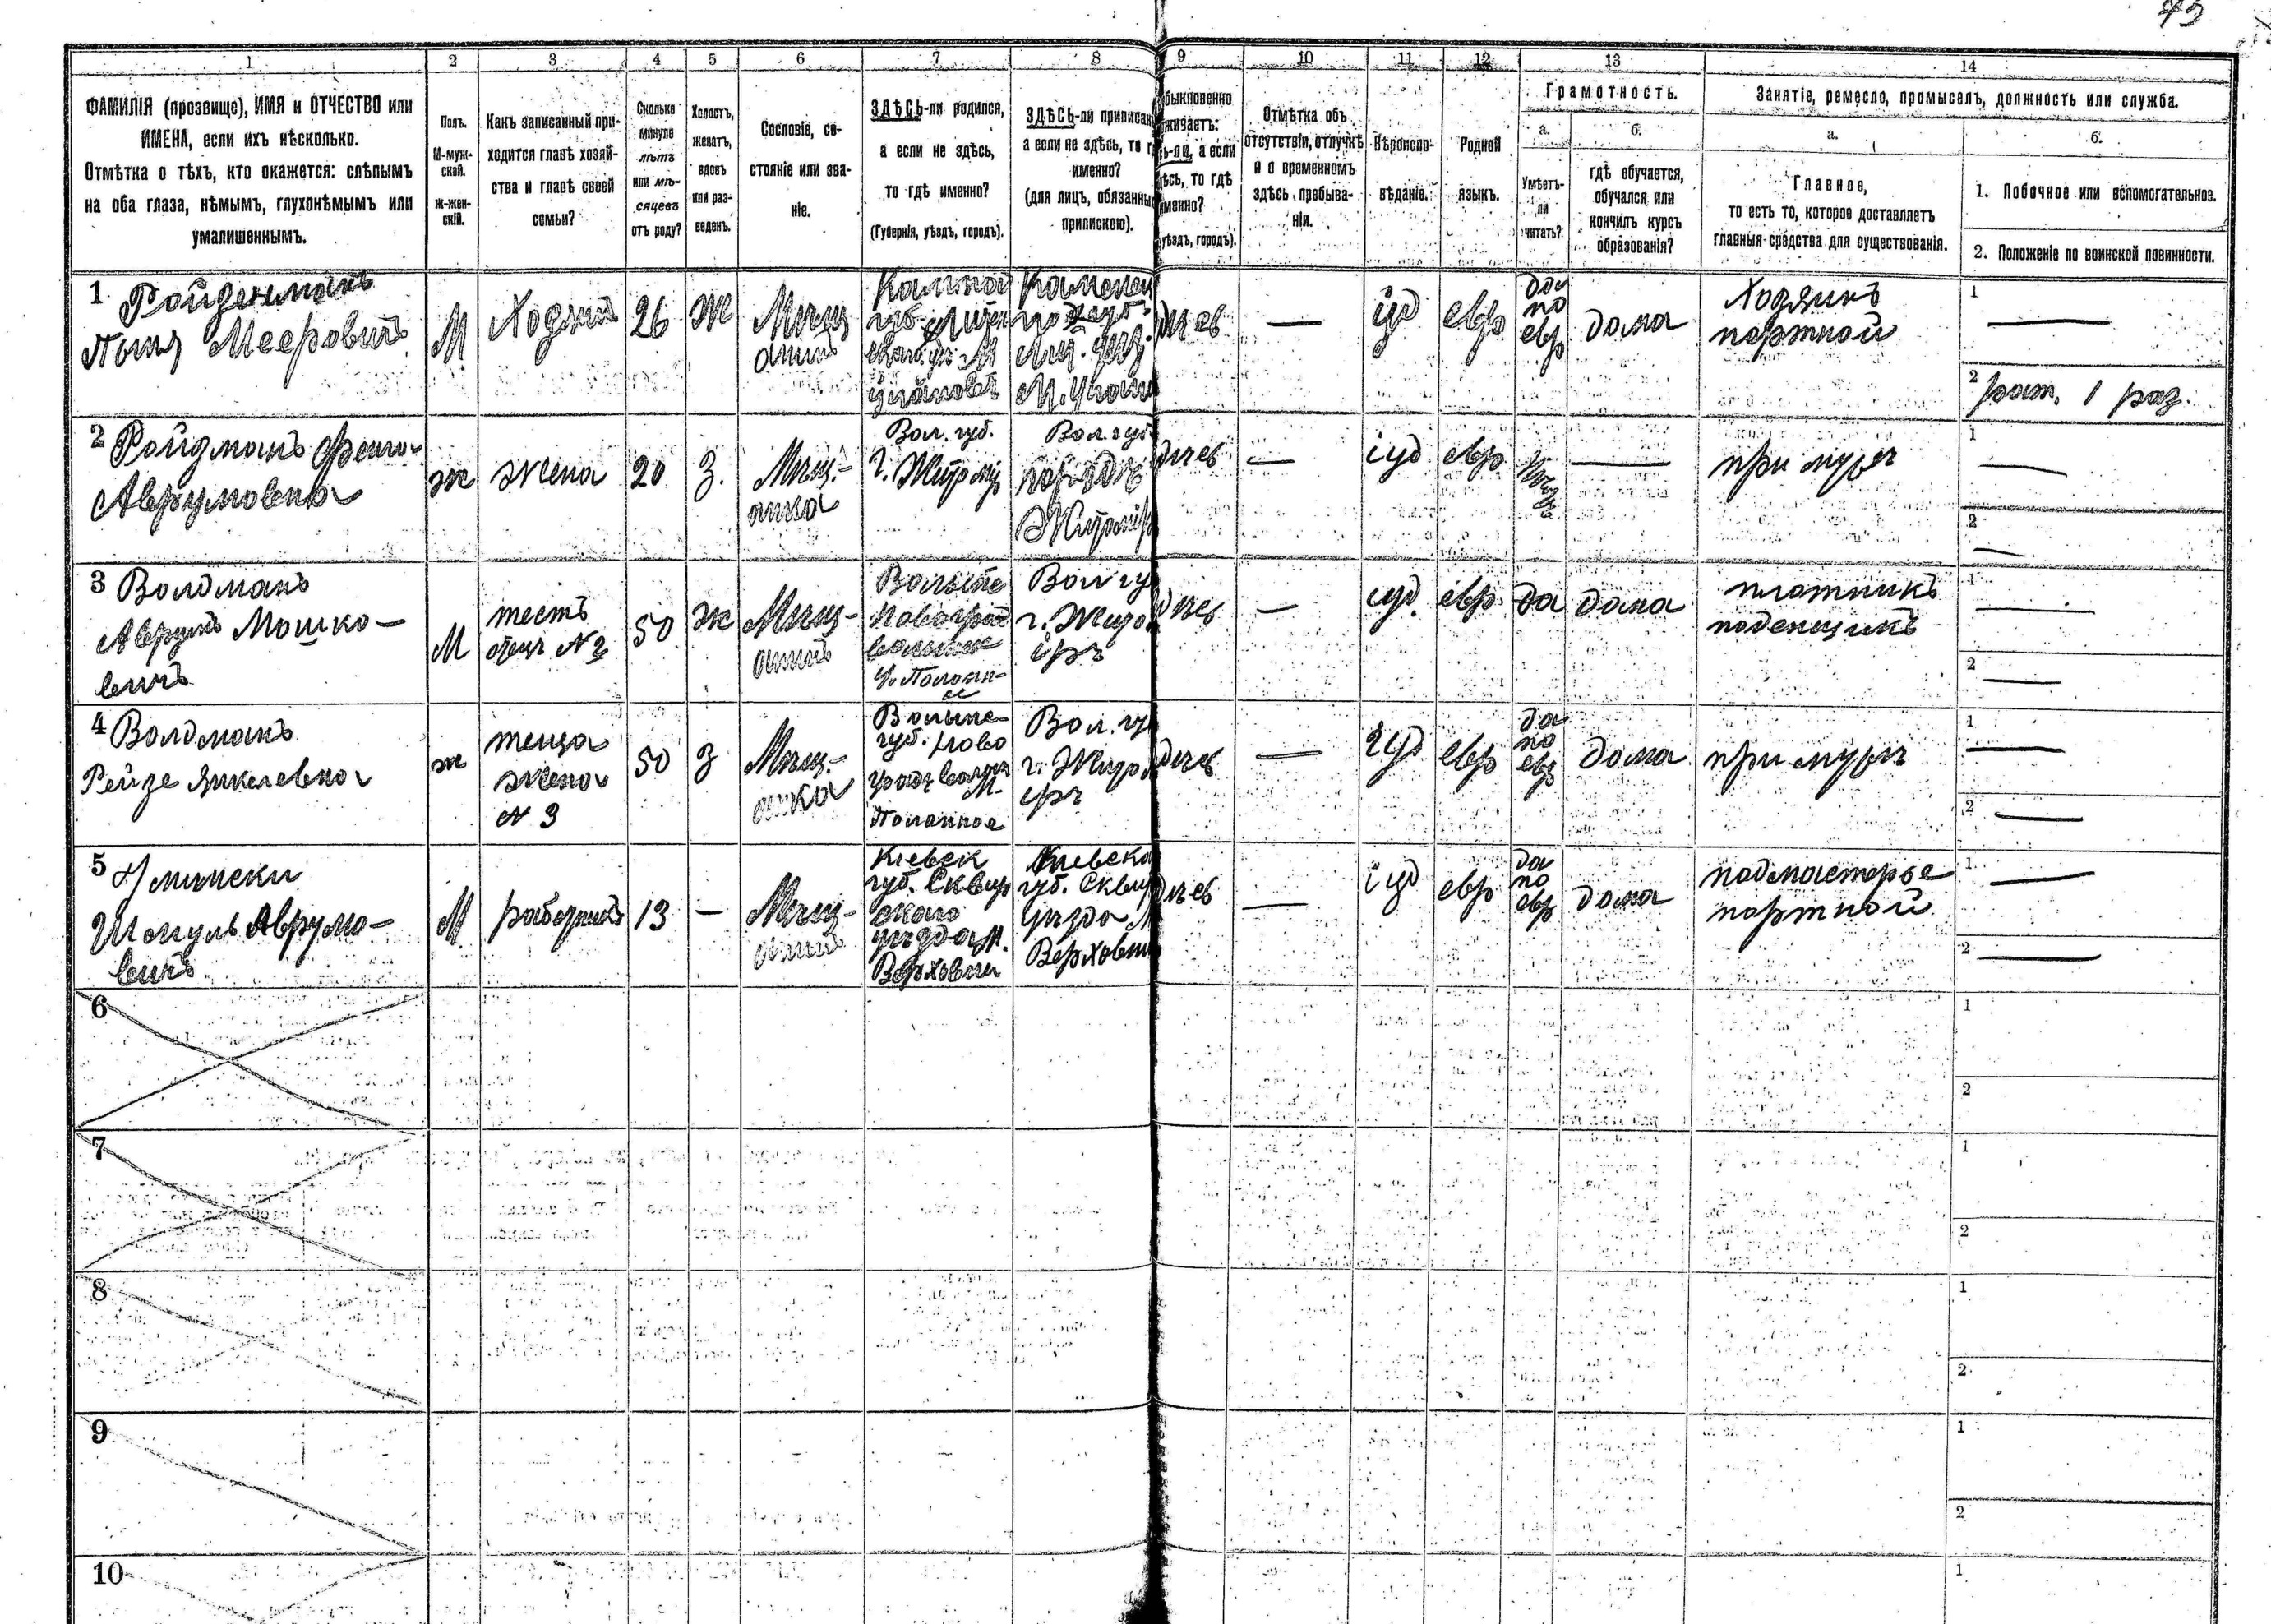 1 2 3 4 5 6 7 8 9 10 11 12 13 14
ФАМИЛІЯ (прозвище), ИМЯ и ОТЧЕСТВО или
ИМЕНА, если ихъ нѣсколько.
Отмѣтка о тѣхъ, кто окажется: слѣпымъ
на оба глаза, нѣмымъ, глухонѣмымъ или
умалишеннымъ.
Полъ.
М-муж-
ской.
Ж-жен-
скій.
Какъ записанный при-
ходится главѣ хозяй-
ства и главѣ своей
семьи?
Сколько
минуло
лѣтъ
или мѣ-
сяцевъ
отъ роду?
Холостъ,
женатъ,
вдовъ
или раз-
веденъ.
Сословіе, со-
стояніе или зва-
ніе.
ЗДѢСЬ-ли родился,
а если не здѣсь,
то гдѣ именно?
(Губернія, уѣздъ, городъ).
ЗДѢСЬ-ли приписан
а если не здѣсь, то г
именно?
(для лицъ, обязанны
припискою).
быкновенно
живаетъ:
ь-ли, а если
ѣсь, то гдѣ
менно?
уѣздъ, городъ).
Отмѣтка объ
отсутствіи, отлучкѣ
и о временномъ
здѣсь пребыва-
ніи.
Вѣроиспо-
вѣданіе.
Родной
языкъ.
Грамотность.
а.
Умѣетъ-
ли
читать?
б.
гдѣ обучается,
обучался или
кончилъ курсъ
образованія?
Занятіе, ремесло, промыселъ, должность или служба.
а.
Главное,
то есть то, которое доставляетъ
главныя средства для существованія.
б.
1. Побочное или вспомогательное.
2. Положеніе по воинской повинности.
1 Ройденманъ
Мееровичъ
М
26
Ж
Мѣщ
анинъ
дичев
—
іуд
евр
да
по
евр
дома
портной
1 —
2 рат. 1 раз.
2 Ройдманъ
Аврумовна
ж
жена
20
З.
Мѣщ-
анка
Вол. губ.
г. Житомір
Вол. губ
дичев
—
іуд
евр
—
при мужѣ
1 —
2 —
3 Волдманъ
Аврумъ Мошко-
вичъ
М
тесть
отец N 2
50
ж
Мѣщ-
анинъ
Вол гу
г. Житом
ірѣ
дичев
—
іуд.
евр
да
дома
плотникъ
поденщикъ
1 —
2 —
4 Волдманъ
Рейзе Янкелевна
ж
теща
жена
N 3
50
з
Мѣщ-
анка
губ. Ново
М.
Полонное
Вол. гу
г. Житом
ірѣ
дичев
—
іуд
евр
да
по
евр
дома
при мужѣ
1 —
2 —
5
Шмуль Аврумо-
вичъ
М
работникъ
13
—
Мѣщ-
анинъ
Кіевск
губ. Сквир
скаго
уѣзда м.
Верховни
Кіевска
губ. Сквир
уѣзда М
Верховни
дичев
—
іуд
евр
да
по
евр
дома
подмастерье
портной
1 —
2 —
6
1
2
7
1
2
8
1
2
9
1
2
10
1